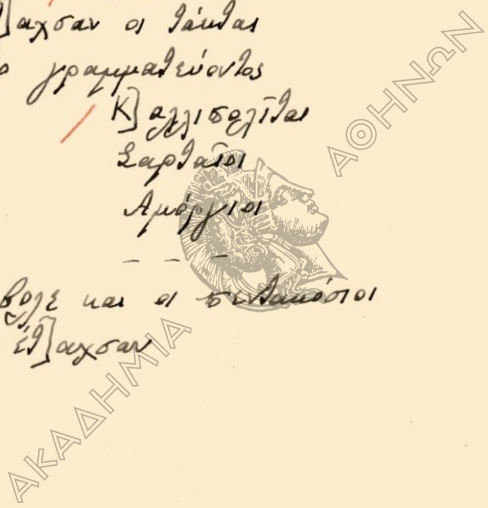 ]αχσαν οι τάκται
ο γραμματεύοντος
Κ]αλλιπολῖται
Σαρταῖοι
Αμόργιοι
– – –
βολε και οι πεντακόσιοι
ἐτ]αχσαν
ΑΚΑΔΗΜΙΑ ΑΘΗΝΩΝ